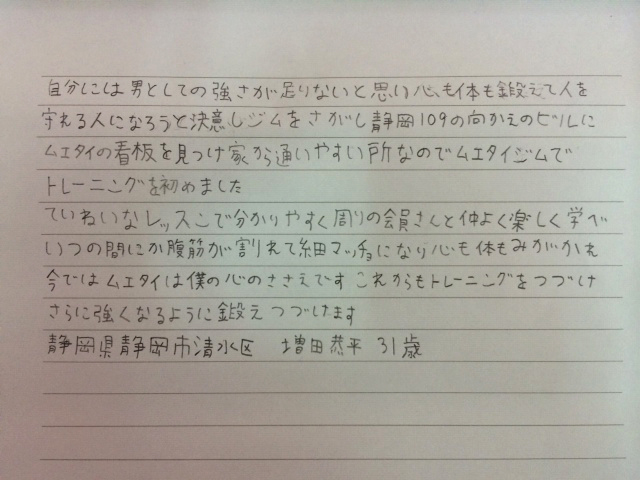 自分には男としての強さが足りないと思い心も体も鍛えて人を
守れる人になろうと決意しジムをさがし静岡109の向かえのビルに
ムエタイの看板を見つけ家から通いやすい所なのでムエタイジムで
トレーニングを初めました
ていねいなレッスンで分かりやすく周りの会員さんと仲よく楽しく学べ
いつの間にか腹筋が割れて細マッチョになり心も体もみがかれ
今ではムエタイは僕の心のささえです これからもトレーニングをつづけ
さらに強くなるように鍛えつづけます
静岡県静岡市清水区 増田恭平 31歳